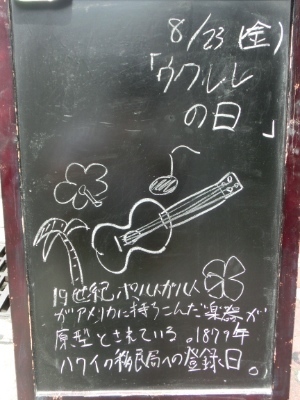 8/23(金)
「ウクレレ
の日」
19世紀ポルトガル人
がアメリカに持ちこんだ楽器が
原型とされている。1877年
ハワイの移民局への登録日。